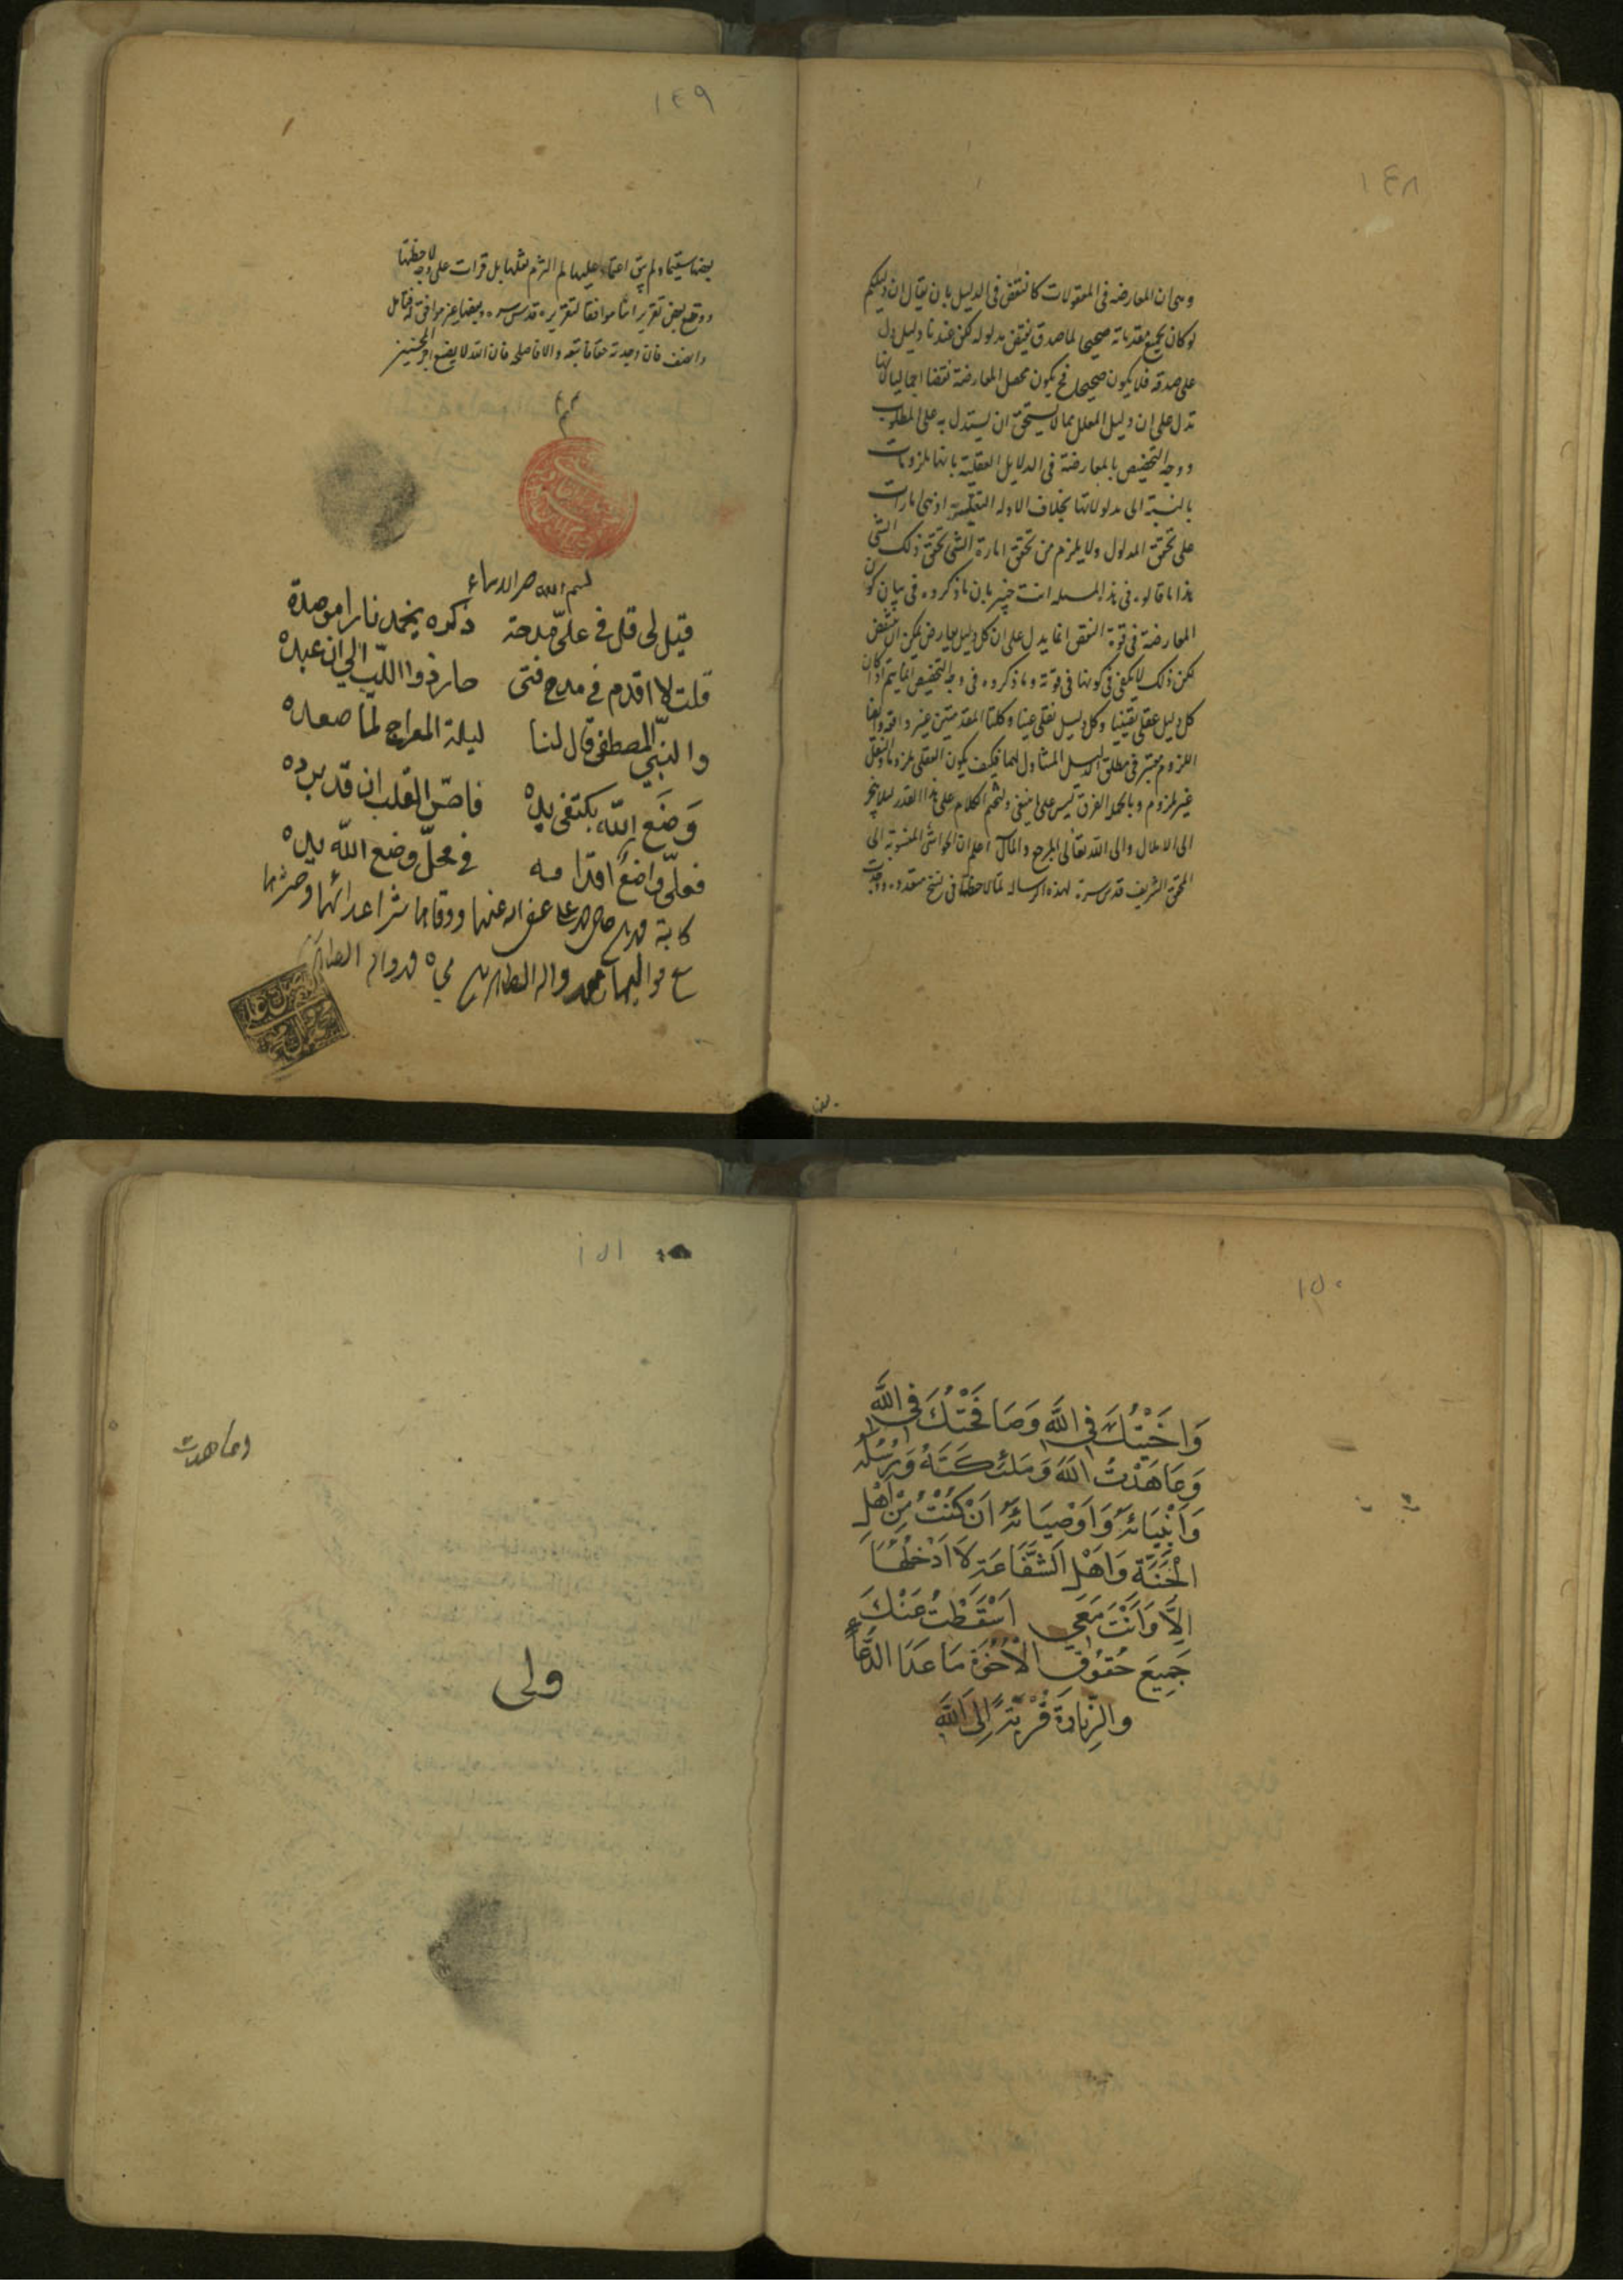 ١٤٨
وهى ان المعارضه فى المعقولات كالنقض فى الدليل بان يقال ان دليلكم
لو كان بجميع مقدماته صحيحا لما صدق نقيض مدلوله لكن عندنا دليل دل
على صدقه فلا يكون صحيحا فح يكون محصل المعارضة نقضا اجماليا لانها
تدل على ان دليل المعلل مما لا يستحق ان يستدل به على المطلوب
ووجه التخصيص بالمعارضة فى الدلايل العقلية بانها ملزومات
بالنسبة الى مدلولاتها بخلاف الادله النقلية اذ هى امارات
على تحقق المدلول ولا يلزم من تحقق امارة الشى تحقق ذلك الشى
هذا ما قالوه فى هذا المسله انت خبير بان ما ذكروه فى بيان كون
المعارضة فى قوة النقض انما يدل على ان كل دليل يعارض يمكن ان ينتقض
لكن ذلك لا يكفى فى كونها فى قوته وما ذكروه فى وجه التخصيص انما يتم اذا كان
كل دليل عقلى يقينيا وكل دليل نقلى ظنيا وكلتا المقدمتين غير واقعه وايضا
اللزوم معتبر فى مطلق الدليل المتناول لهما فكيف يكون العقلى ملزوما والنقلى
غير ملزوم وبالجمله الفرق ليس على ما ينبغى ولنختم الكلام على هذا القدر ليلا ينجر
الى الاملال والى الله تعالى المرجع والمآل اعلم ان الحواشى المنسوبة الى
المحقق الشريف قدس سره لهذه الرساله لما لاحظتها فى نسخ متعدده ووجدت
١٤٩
بعضها سقيما ولم يبق اعتماد عليها لم التزم نقلها بل قرات على وجه لاحظتها
ووقع بعض تقريراتنا موافقا لتقريره قدس سره وبعضها غير موافق له فتامل
وانصف فان وجدته حقا فاتبعه والا فاصلح فان الله لا يضيع اجر المحسنين
بسم الله خير الاسماء
قيل لى قل فى علىّ مدحة ذكره يخمد نارا موصدة
قلت لا اقدم فى مدح فتى حار ذو اللبّ الى ان عبده
والنبىّ المصطفى قال لنا ليلة المعراج لما صعده
وَضَعَ الله بكتفى يده فاحسّ القلب ان قد برده
فعلىّ واضعٌ اقدامه فى محلّ وضع الله يده
عفى الله عنهما ووقاهما شر اعدائهما
محمد واله الطاهرين
١٥٠
وَاخَيْتُكَ فِى اللَّهِ وَصَافَحْتُكَ فِى اللَّهِ
وَعَاهَدْتُ اللَّهَ وَمَلَٰئِكَتَهُ وَرُسُلَهُ
وَاَنْبِيَائَهُ وَاَوْصِيَائَهُ اَنْ كُنْتُ مِنْ اَهْلِ
الْجَنَّةِ وَاَهْلِ الشَّفَاعَةِ لَا اَدْخُلُهَا
اِلَّا وَاَنْتَ مَعِى اَسْقَطْتُ عَنْكَ
جَمِيعَ حُقُوقِ الْاُخُوَّةِ مَا عَدَا الدُّعَاءِ
وَالزِّيَارَةِ قُرْبَةً اِلَى اللَّهِ
١٥١
وعاهدت
ولى